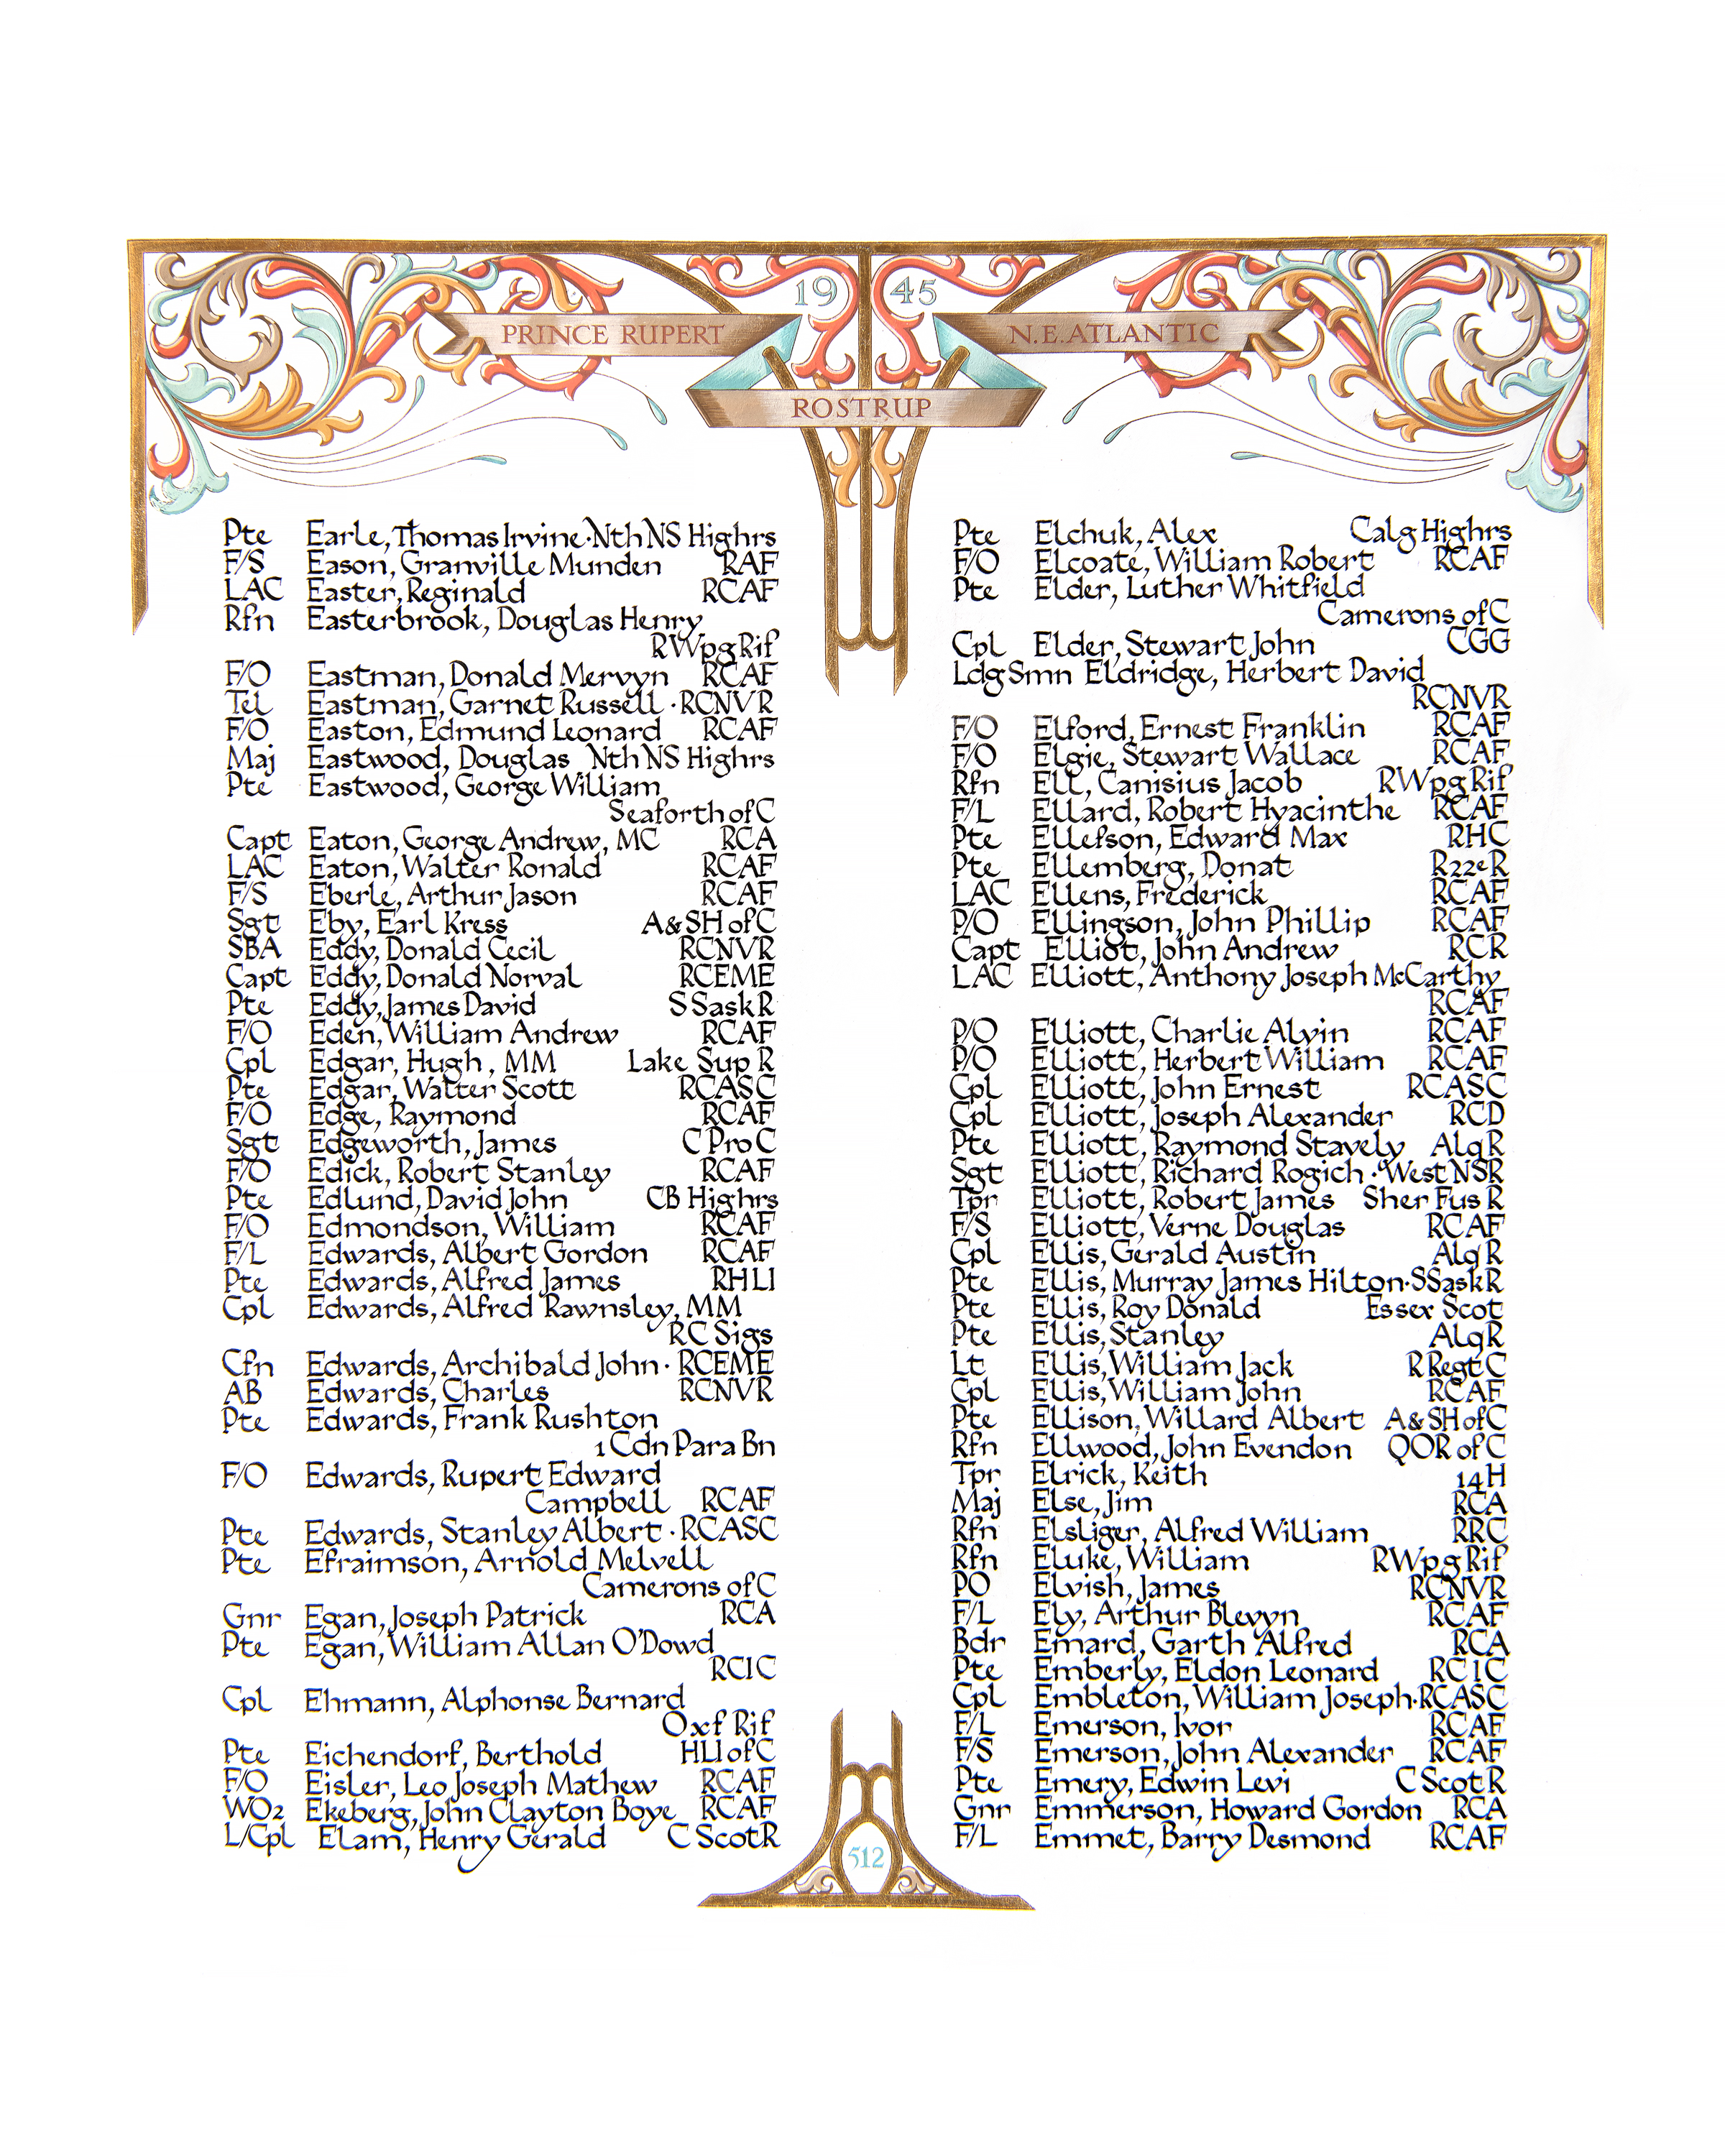 19 45
PRINCE RUPERT
N.E.ATLANTIC
ROSTRUP
Pte Earle, Thomas Irvine·Nth NS Highrs
F/S Eason, Granville Munden RAF
LAC Easter, Reginald RCAF
Rfn Easterbrook, Douglas Henry
RWpg Rif
F/O Eastman, Donald Mervyn RCAF
Tel Eastman, Garnet Russell · RCNVR
F/O Easton, Edmund Leonard RCAF
Maj Eastwood, Douglas Nth NS Highrs
Pte Eastwood, George William
Seaforth of C
Capt Eaton, George Andrew, MC RCA
LAC Eaton, Walter Ronald RCAF
F/S Eberle, Arthur Jason RCAF
Sgt Eby, Earl Kress A&SH of C
SBA Eddy, Donald Cecil RCNVR
Capt Eddy, Donald Norval RCEME
Pte Eddy, James David S Sask R
F/O Eden, William Andrew RCAF
Cpl Edgar, Hugh, MM Lake Sup R
Pte Edgar, Walter Scott RCASC
F/O Edge, Raymond RCAF
Sgt Edgeworth, James C Pro C
F/O Edick, Robert Stanley RCAF
Pte Edlund, David John CB Highrs
F/O Edmondson, William RCAF
F/L Edwards, Albert Gordon RCAF
Pte Edwards, Alfred James RHLI
Cpl Edwards, Alfred Rawnsley, MM
RC Sigs
Cfn Edwards, Archibald John · RCEME
AB Edwards, Charles RCNVR
Pte Edwards, Frank Rushton
1 Cdn Para Bn
F/O Edwards, Rupert Edward
Campbell RCAF
Pte Edwards, Stanley Albert · RCASC
Pte Efraimson, Arnold Melvell
Camerons of C
Gnr Egan, Joseph Patrick RCA
Pte Egan, William Allan O'Dowd
RCIC
Cpl Ehmann, Alphonse Bernard
Oxf Rif
Pte Eichendorf, Berthold HLI of C
F/O Eisler, Leo Joseph Mathew RCAF
WO2 Ekeberg, John Clayton Boye RCAF
L/Cpl Elam, Henry Gerald C Scot R
Pte Elchuk, Alex Calg Highrs
F/O Elcoate, William Robert RCAF
Pte Elder, Luther Whitfield
Camerons of C
Cpl Elder, Stewart John CGG
Ldg Smn Eldridge, Herbert David
RCNVR
F/O Elford, Ernest Franklin RCAF
F/O Elgie, Stewart Wallace RCAF
Rfn Ell, Canisius Jacob RWpg Rif
F/L Ellard, Robert Hyacinthe RCAF
Pte Ellefson, Edward Max RHC
Pte Ellemberg, Donat R22eR
LAC Ellens, Frederick RCAF
P/O Ellingson, John Phillip RCAF
Capt Elliot, John Andrew RCR
LAC Elliott, Anthony Joseph McCarthy
RCAF
P/O Elliott, Charlie Alvin RCAF
P/O Elliott, Herbert William RCAF
Cpl Elliott, John Ernest RCASC
Cpl Elliott, Joseph Alexander RCD
Pte Elliott, Raymond Stavely Alq R
Sgt Elliott, Richard Rogich · West NSR
Tpr Elliott, Robert James Sher Fus R
F/S Elliott, Verne Douglas RCAF
Cpl Ellis, Gerald Austin Alq R
Pte Ellis, Murray James Hilton·S Sask R
Pte Ellis, Roy Donald Essex Scot
Pte Ellis, Stanley Alq R
Lt Ellis, William Jack R Regt C
Cpl Ellis, William John RCAF
Pte Ellison, Willard Albert A&SH of C
Rfn Ellwood, John Evendon QOR of C
Tpr Elrick, Keith 14H
Maj Else, Jim RCA
Rfn Elsliger, Alfred William RRC
Rfn Eluke, William RWpg Rif
PO Elvish, James RCNVR
F/L Ely, Arthur Blevyn RCAF
Bdr Emard, Garth Alfred RCA
Pte Emberly, Eldon Leonard RCIC
Cpl Embleton, William Joseph·RCASC
F/L Emerson, Ivor RCAF
F/S Emerson, John Alexander RCAF
Pte Emery, Edwin Levi C Scot R
Gnr Emmerson, Howard Gordon RCA
F/L Emmet, Barry Desmond RCAF
512